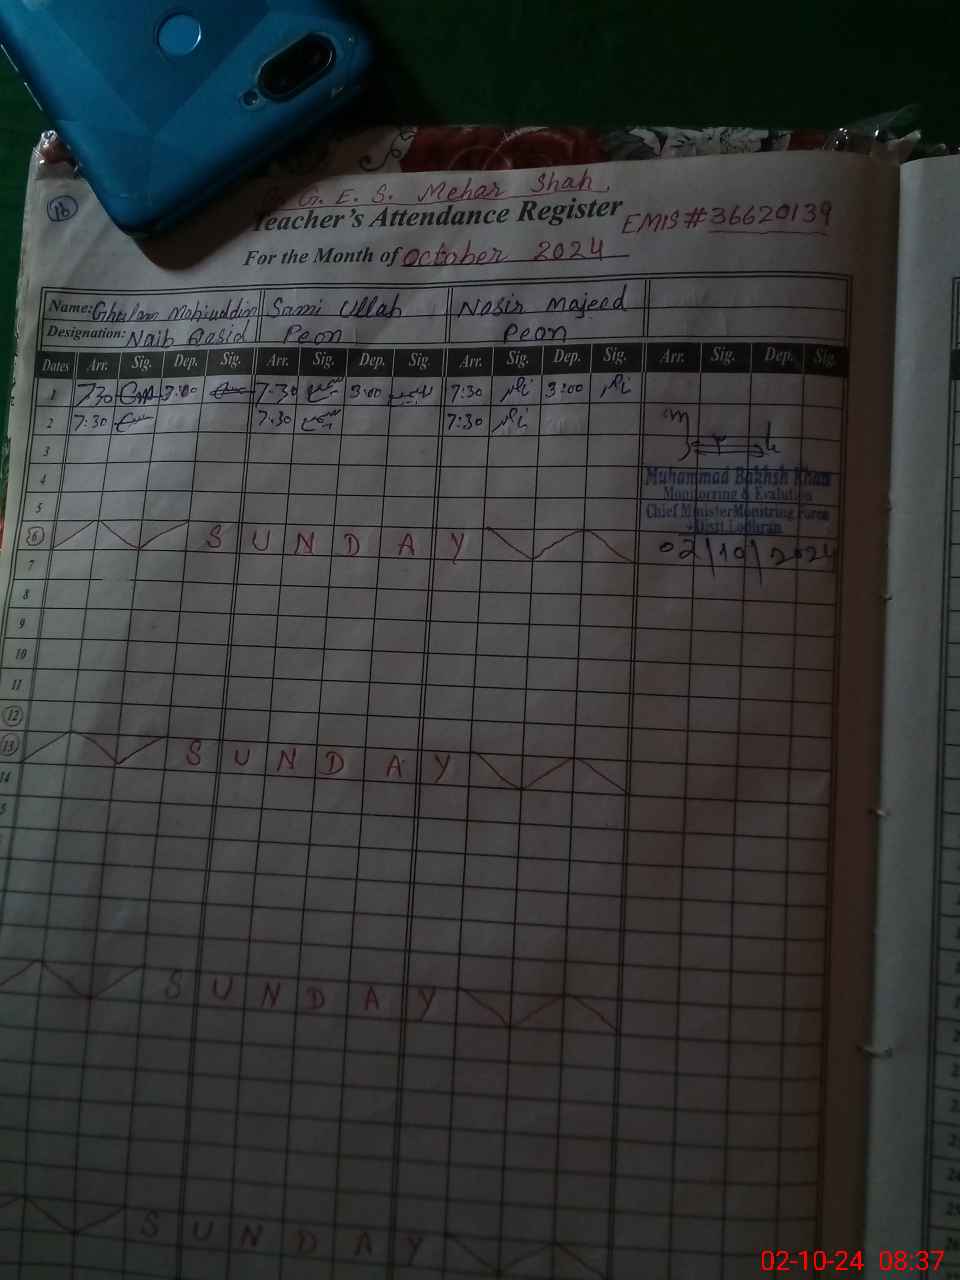 16
G. E. S. Mehar Shah.
Teacher's Attendance Register
EMIS # 36620139
For the Month of October 2024
Name: Ghulam Mohiuddin Sami Ullah Nasir Majeed
Designation: Naib Qasid Peon Peon
Dates Arr. Sig. Dep. Sig. Arr. Sig. Dep. Sig. Arr. Sig. Dep. Sig. Arr. Sig. Dep. Sig.
1 7:30 3:00 7:30 سمیع 3:00 سمیع 7:30 ناصر 3:00 ناصر
2 7:30 7:30 سمیع 7:30 ناصر
3
4
Muhammad Bakhsh Khan
Monitorring & Evalution
5
Chief MinisterMonitring Force
Disit Lodhran
6 SUNDAY
02/10/2024
7
8
9
10
11
12
13 SUNDAY
14
SUNDAY
SUNDAY
02-10-24 08:37